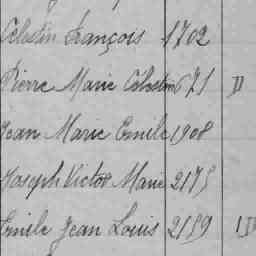 Célestin François 1702
Pierre Marie Célestin 671 II
Jean Marie Emile 1908
Joseph Victor Marie 2175
Emile Jean Louis 2159